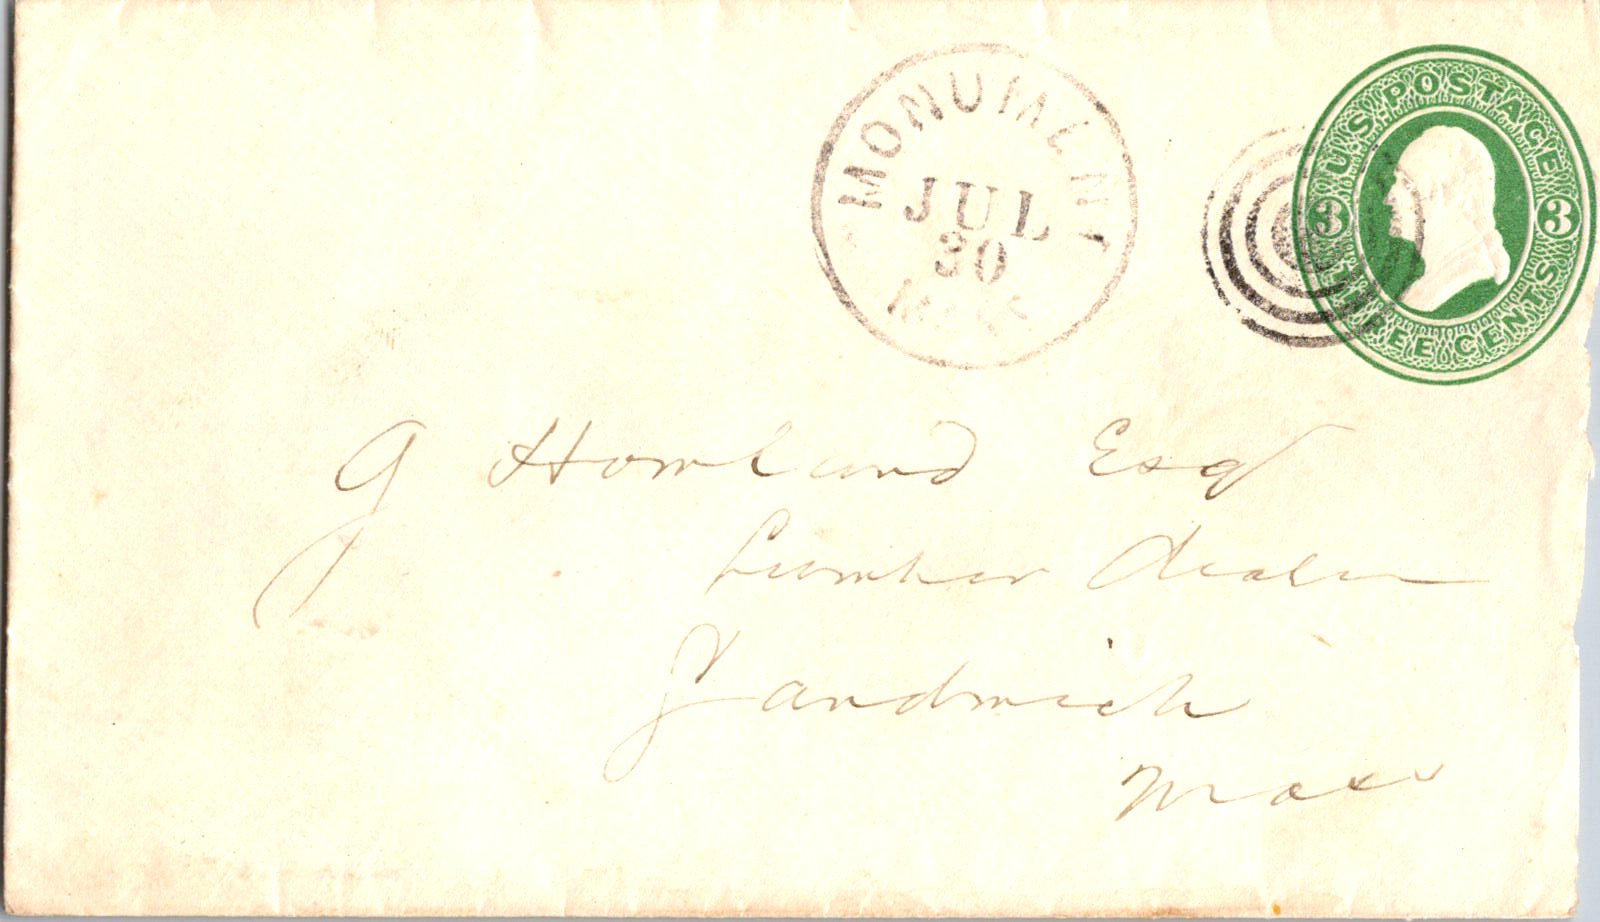 MONUMENT
JUL
30
MASS
U.S. POSTAGE
3 3
THREE CENTS
G Howland Esq
Lumber dealer
Sandwich
Mass